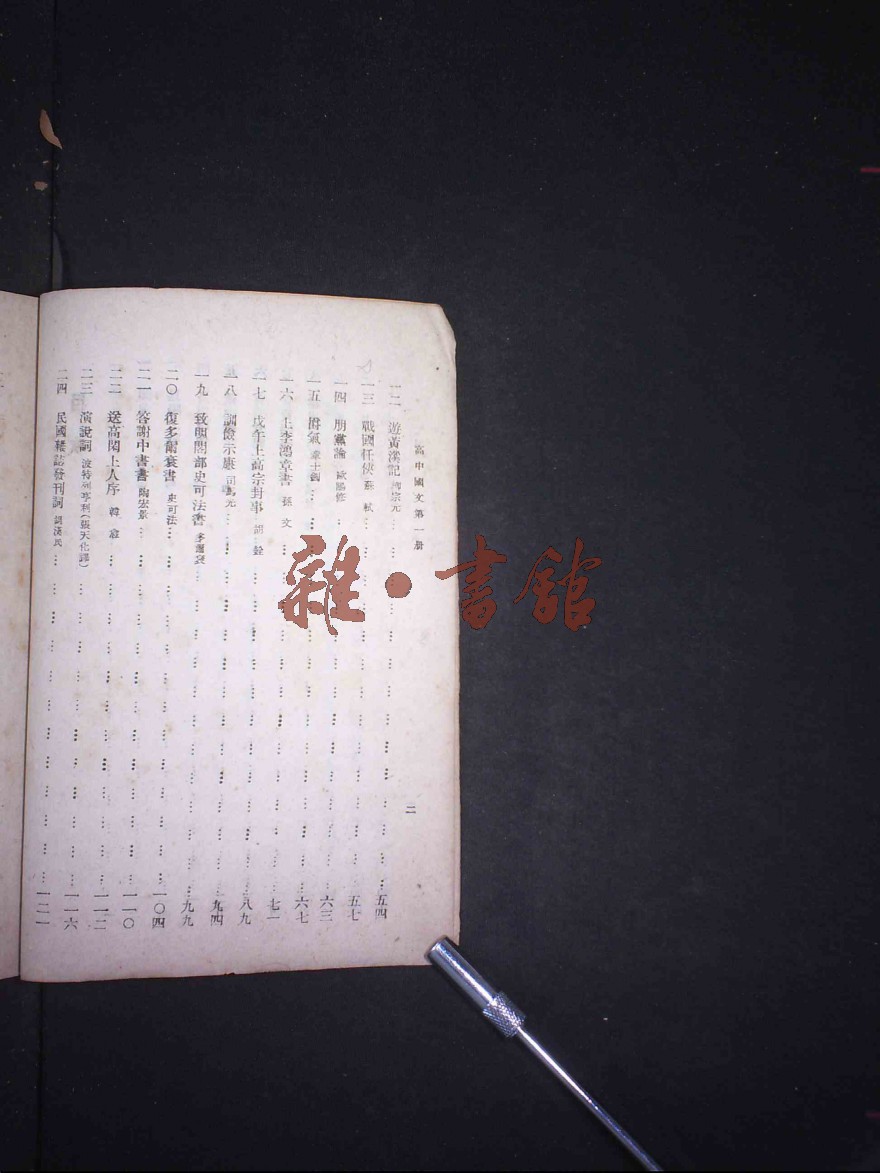 高中國文第一册
二
一二 遊黃溪記 柳宗元 五四
一三 戰國任俠 蘇軾 五七
一四 朋黨論 歐陽修 六三
一五 習氣 章士釗 六七
一六 上李鴻章書 孫文 七一
一七 戊午上高宗封事 胡銓 八九
一八 訓儉示康 司馬光 九四
一九 致明閣部史可法書 多爾袞 九九
二〇 復多爾袞書 史可法 一〇四
二一 答謝中書書 陶宏景 一一〇
二二 送高閑上人序 韓愈 一一二
二三 演說詞 波特利亨利(張天化譯) 一一六
二四 民國雜誌發刊詞 胡漢民 一二一
雜•書館